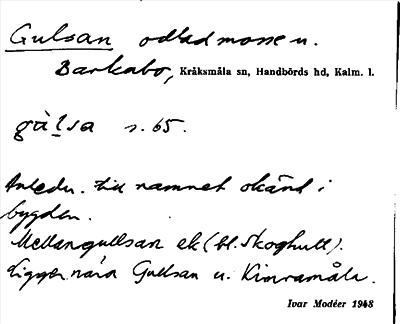 Gulsan odlad mosse u.
Barkabo, Kråksmåla sn, Handbörds hd, Kalm. l.
gùlsa s. 65.
Anledn. till namnet okänd i
bygden.
Mellangullsan ek (bl. Skoghult).
Ligger nära Gullsan u. Kinramåla.
Ivar Modéer 1948